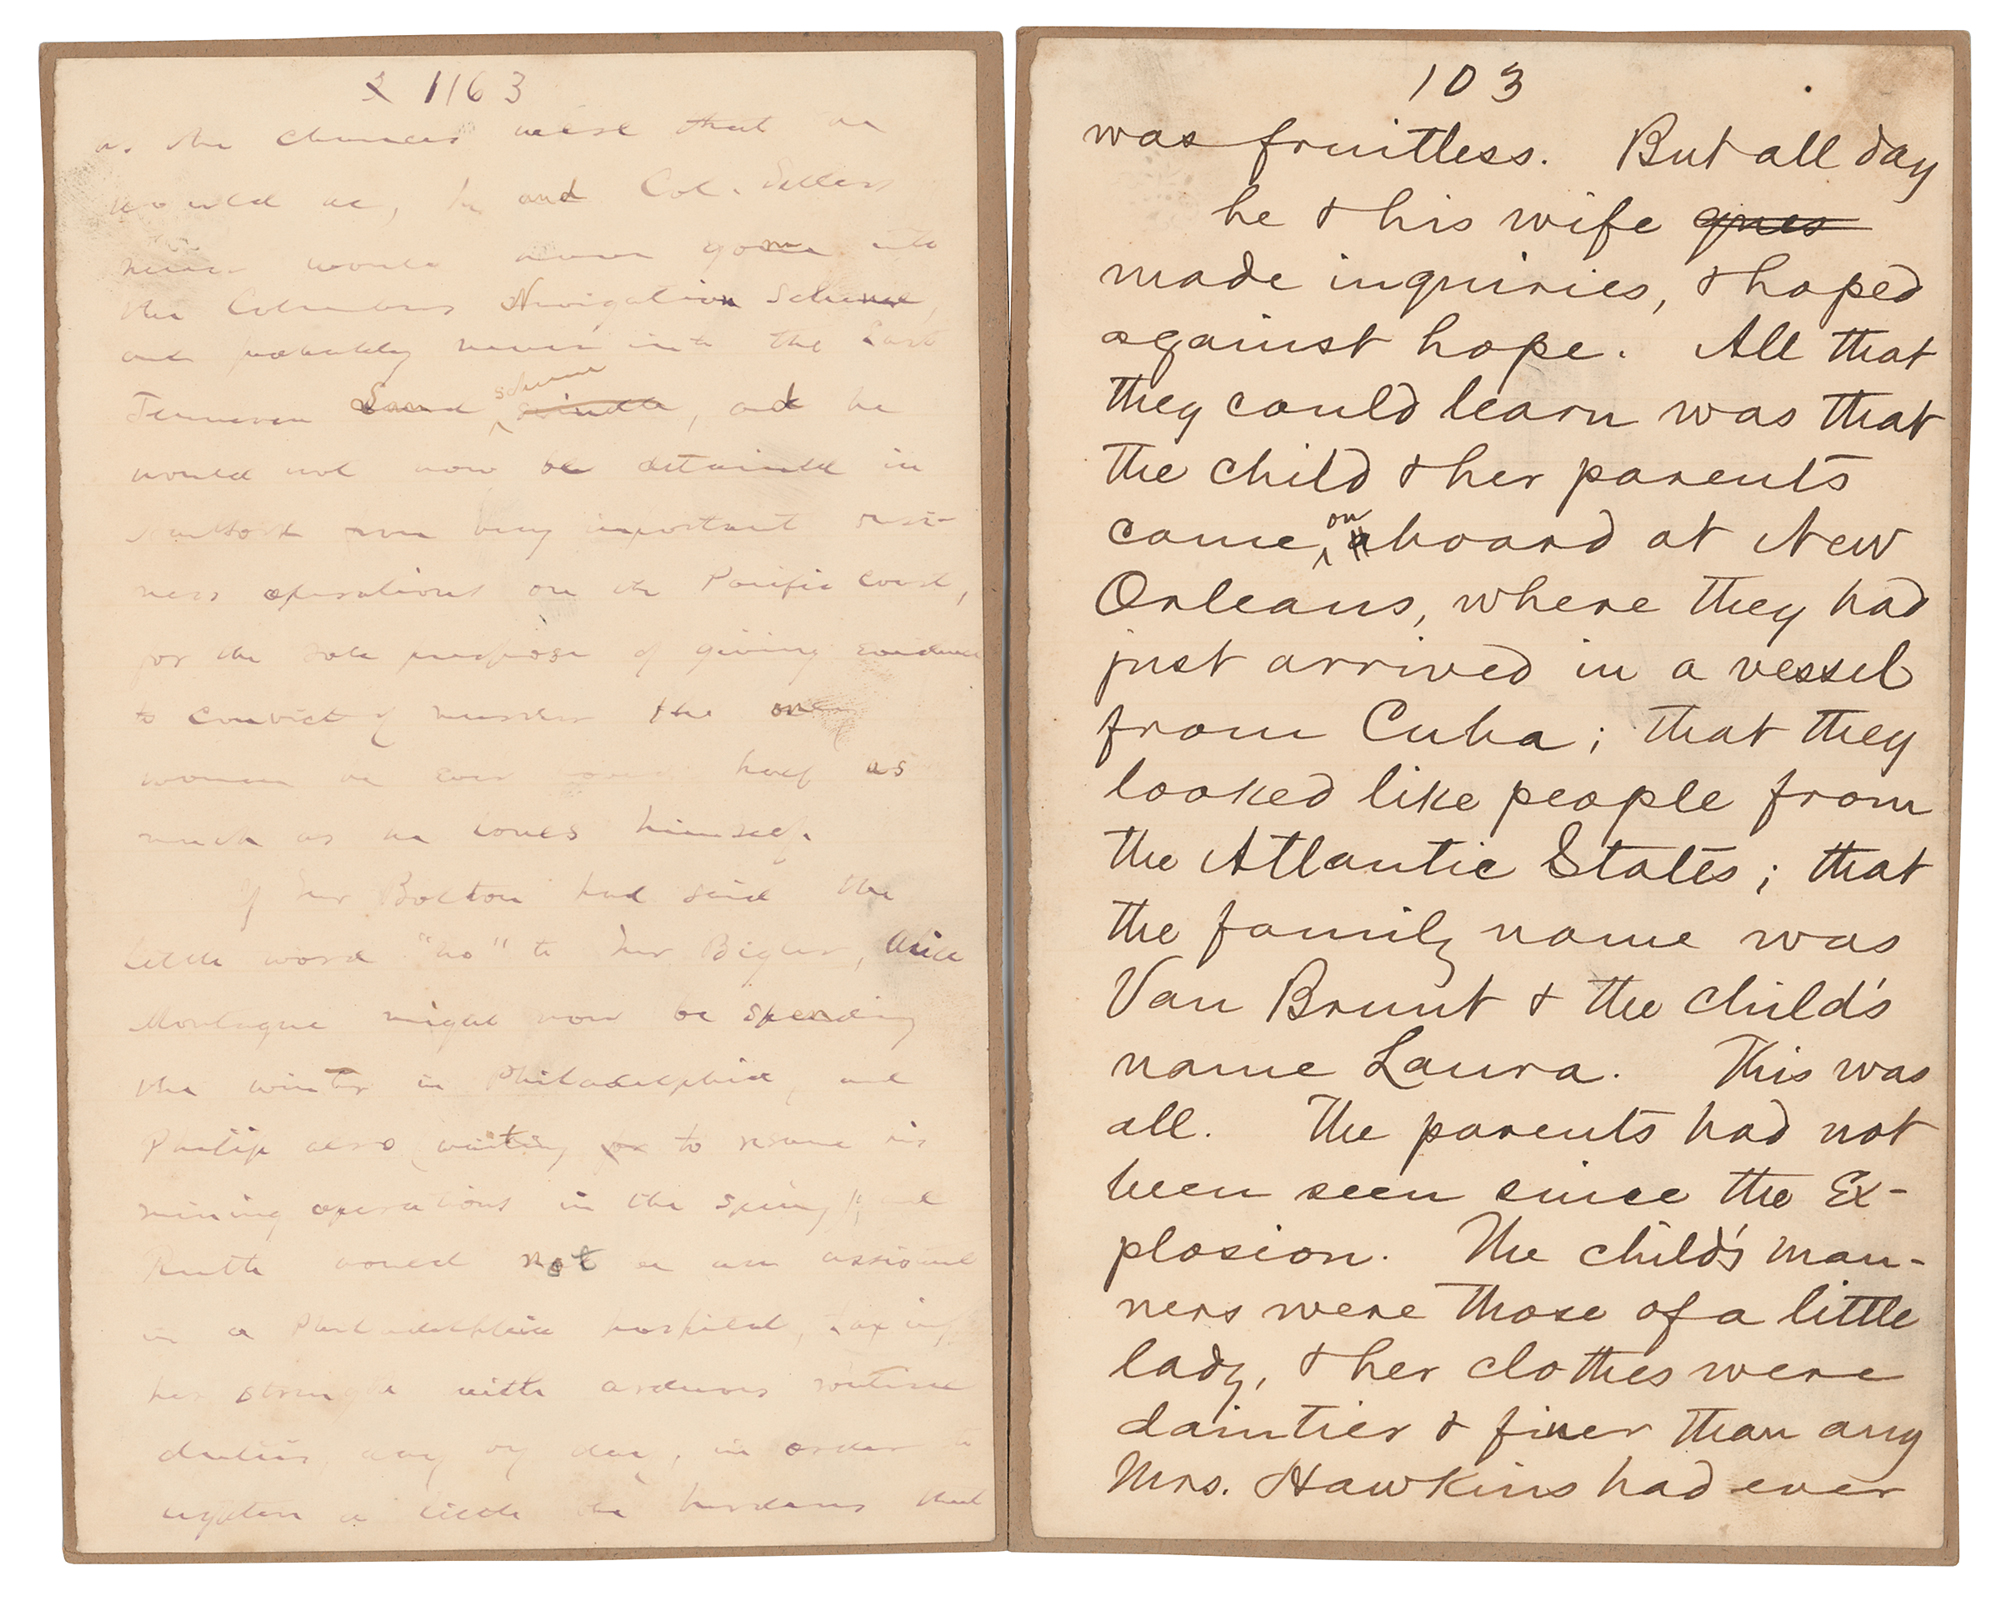 1163
as the chances were that he
would be, he and Col. Sellers
never would have gone into
the Columbus Navigation Scheme,
and probably never into the East
Tennessee Land scheme swindle, and he
would not now be detained in
New York from very important busi-
ness operations on the Pacific coast,
for the sole purpose of giving evidence
to convict of murder the only
woman he ever loved half as
much as he loves himself.
If Mr Bolton had said the
little word "no" to Mr Bigler, Alice
Montague might now be spending
the winter in Philadelphia, and
Philip also (waiting to resume his
mining operations in the spring); and
Ruth would not be an assistant
in a Philadelphia hospital, taxing
her strength with arduous routine
duties, day by day, in order to
lighten a little the burdens that
103
was fruitless. But all day
he & his wife gues
made inquiries, & hoped
against hope. All that
they could learn was that
the child & her parents
came on aboard at New
Orleans, where they had
just arrived in a vessel
from Cuba; that they
looked like people from
the Atlantic States; that
the family name was
Van Brunt & the child's
name Laura. This was
all. The parents had not
been seen since the Ex-
plosion. The child's man-
ners were those of a little
lady, & her clothes were
daintier & finer than any
Mrs. Hawkins had ever